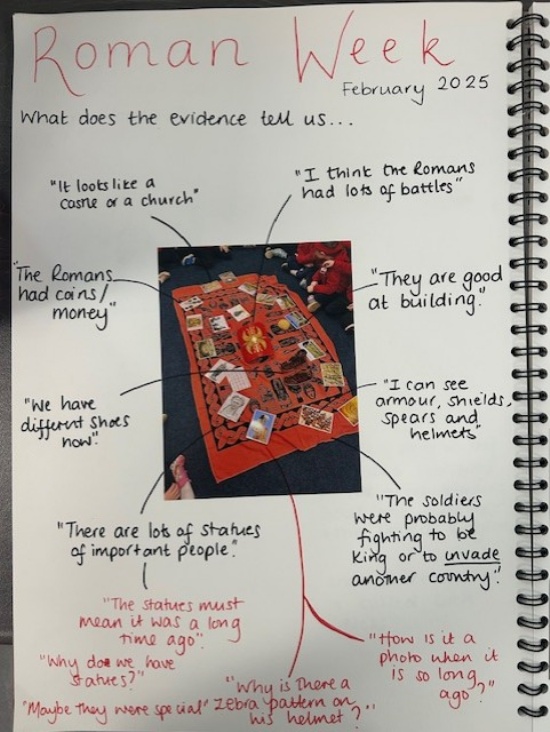 Roman Week
February 2025
What does the evidence tell us...
"It looks like a
castle or a church"
"I think the Romans
had lots of battles"
"The Romans
had coins/
money"
"They are good
at building."
"We have
different shoes
now".
"I can see
armour, shields,
spears and
helmets"
"There are lots of statues
of important people."
"The soldiers
were probably
fighting to be
king or to invade
another country".
"The statues must
mean it was a long
time ago".
"Why do we have
statues?"
"Maybe they were special"
"Why is there a
zebra pattern on
his helmet?"
"How is it a
photo when it
is so long
ago?"